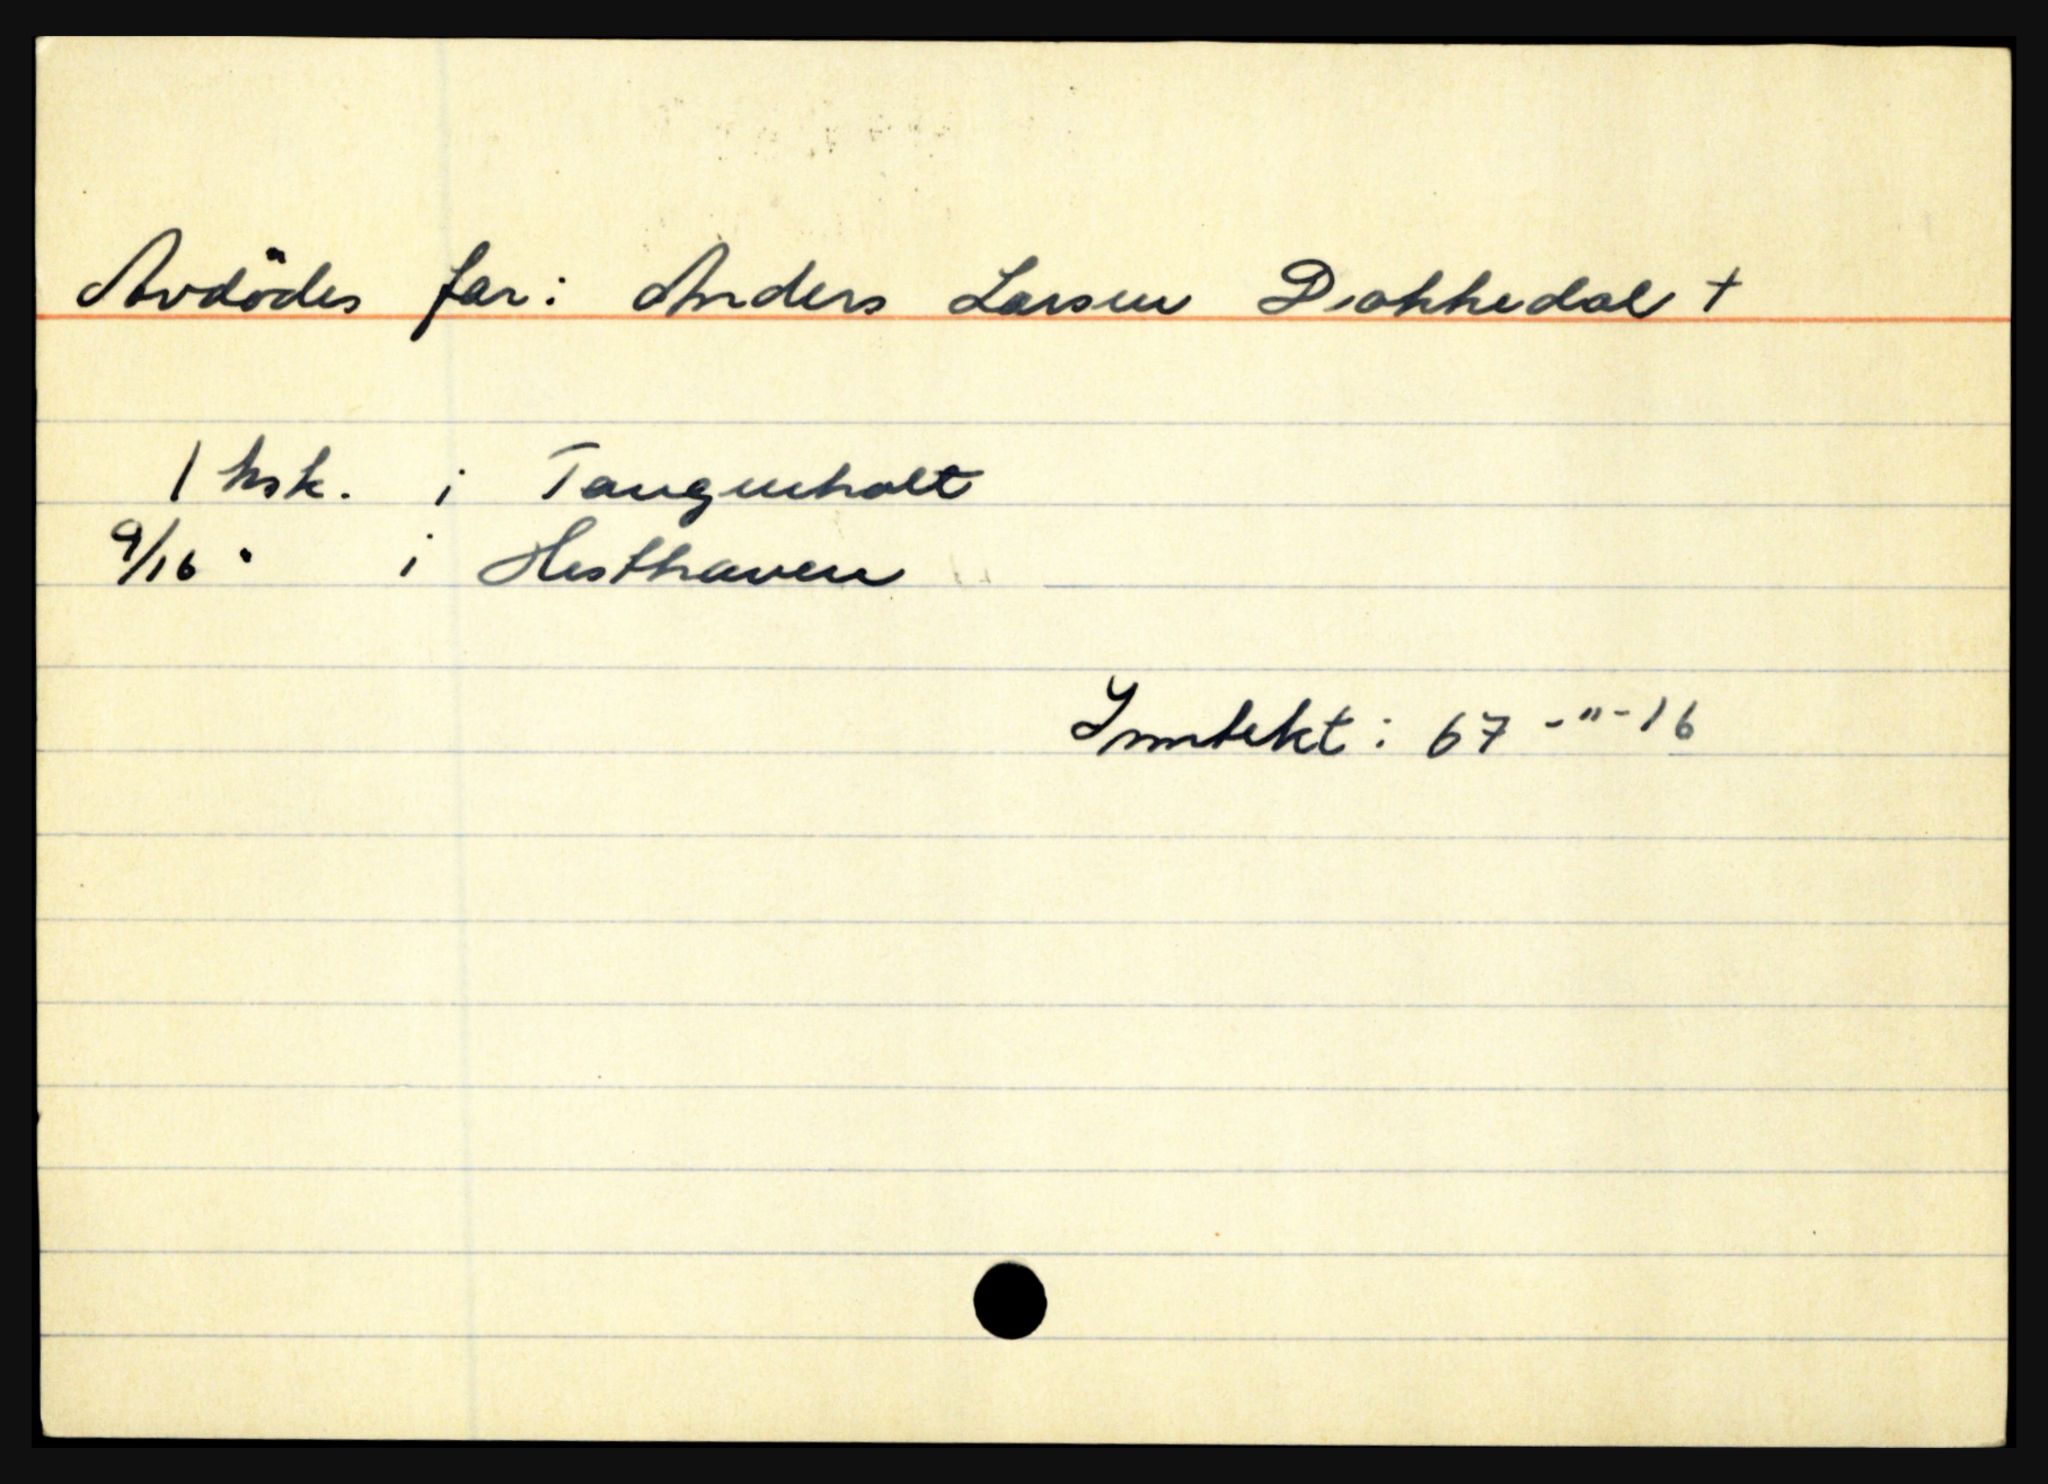 Avdödes far: Anders Larsen Drakkedal +
1 hsk. i Tangenholt
9/16 " i Hesthaven
Inntekt: 67-"-16